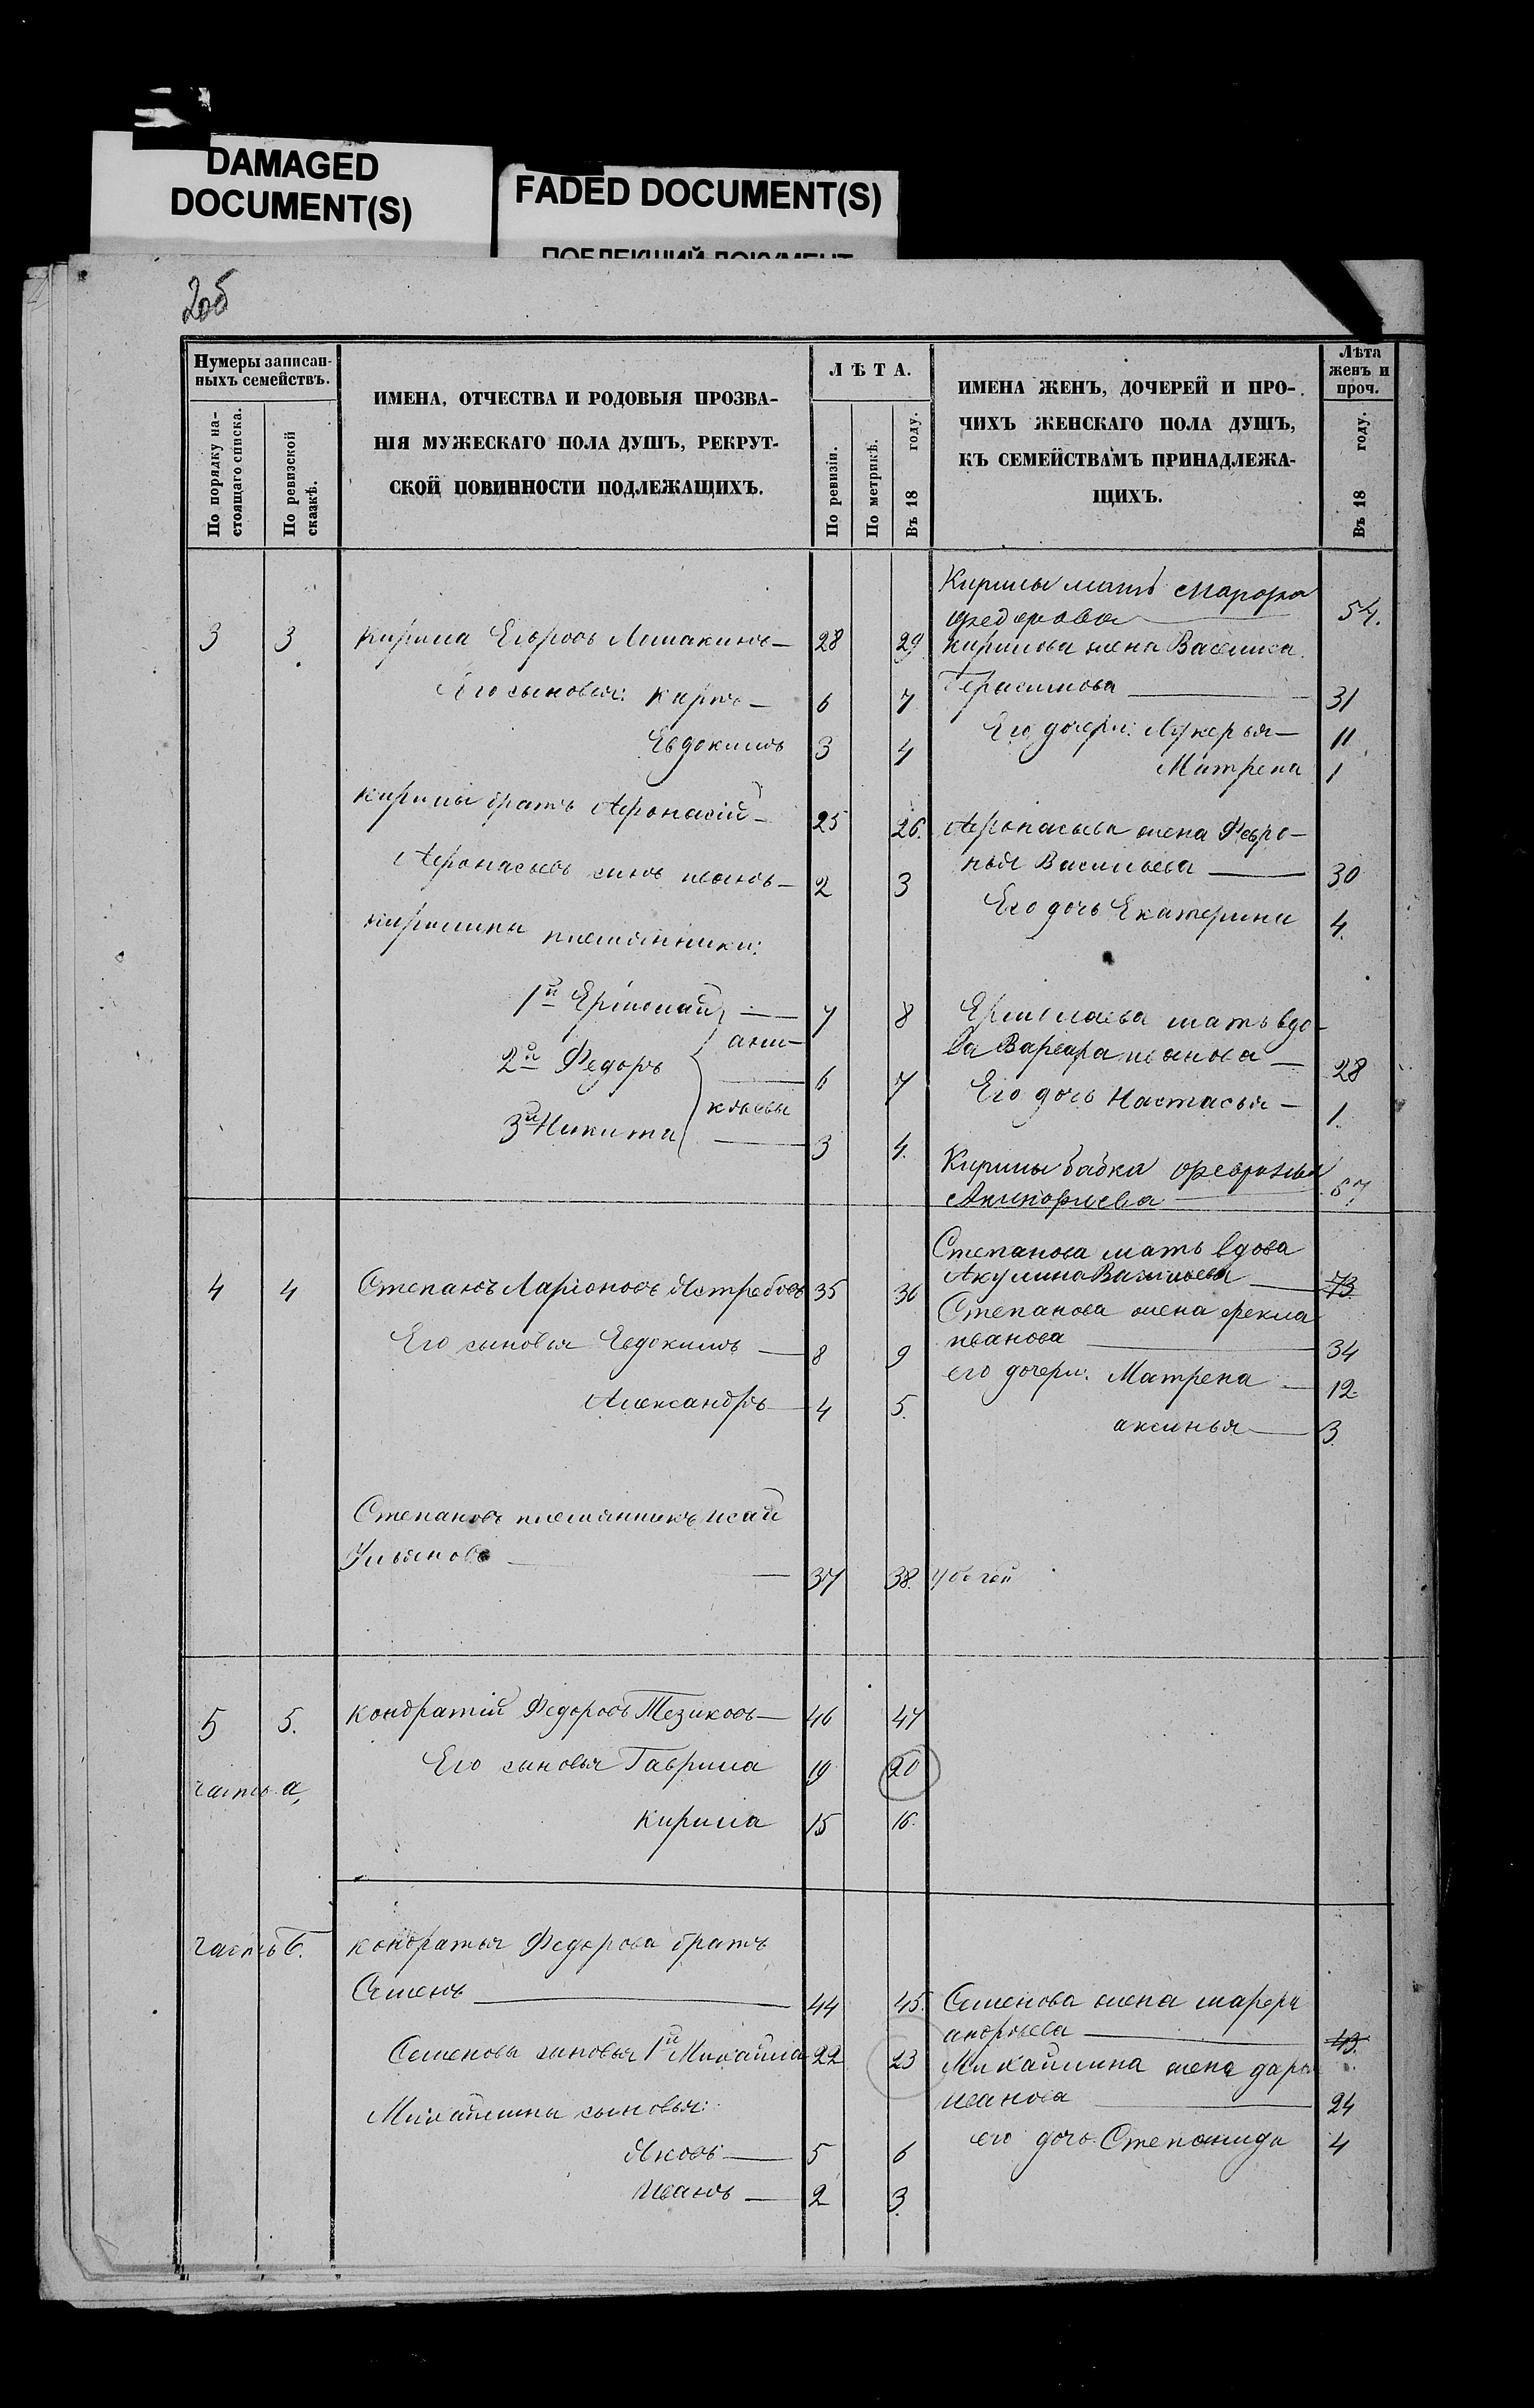 DAMAGED
DOCUMENT(S)
FADED DOCUMENT(S)
ПОБЛЕКШИЙ ДОКУМЕНТ
205
Нумеры записан-
ныхъ семействъ.
По порядку на-
стоящаго списка.
По ревизской
сказкѣ.
ИМЕНА, ОТЧЕСТВА И РОДОВЫЯ ПРОЗВА-
НІЯ МУЖЕСКАГО ПОЛА ДУШЪ, РЕКРУТ-
СКОЙ ПОВИННОСТИ ПОДЛЕЖАЩИХЪ.
ЛѢТА.
По ревизіи.
По метрикѣ.
Въ 18 году.
ИМЕНА ЖЕНЪ, ДОЧЕРЕЙ И ПРО-
ЧИХЪ ЖЕНСКАГО ПОЛА ДУШЪ,
КЪ СЕМЕЙСТВАМЪ ПРИНАДЛЕЖА-
ЩИХЪ.
Лѣта
женъ и
проч.
Въ 18 году.
Кирилы мать Марфа
федорова 54.
3 3 Кирила Егоровъ 28 29 Кирилова жена Василиса
Его сыновья: Карпъ 6 7 Герасимова 31
Евдокимъ 3 4 Его дочери: Лукерья 11
Матрена 1
Кирилы братъ Афонасій 25 26. Афонасьева жена Февро-
нья Васильева 30
Афонасьевъ сынъ иванъ 2 3
Его дочь Екатерина 4.
Кирилины племянники:
1й Ермолай 7 8 Ермолаева мать вдо-
ва Варвара иванова 28
2й Федоръ 6 7
Его дочь Настасья 1.
3й Никита 3 4.
Кирилы бабка Февронья
67
Степанова мать вдова
Акулина Васильева 73
4 4 Степанъ Ларіоновъ Ястребовъ 35 36
Степанова жена фекла
иванова 34
Его сыновья Евдокимъ 8 9
его дочери: Матрена 12
Александръ 4 5.
аксинья 3.
Степановъ племянникъ исай
Ульяновъ 37 38. убогой
5 5. Кондратій Федоровъ Тезиковъ 46 47
Его сыновья Гаврила 19 20
часть а,
Кирила 15 16.
часть б. Кондратья Федорова братъ
Семенъ 44 45. Семенова жена марфа
андрѣева 43.
Семеновы сыновья 1й Михайла 22 23 Михайлина жена дарья
иванова 24
Михайлины сыновья:
его дочь Степонида 4
Яковъ 5 6
иванъ 2 3.